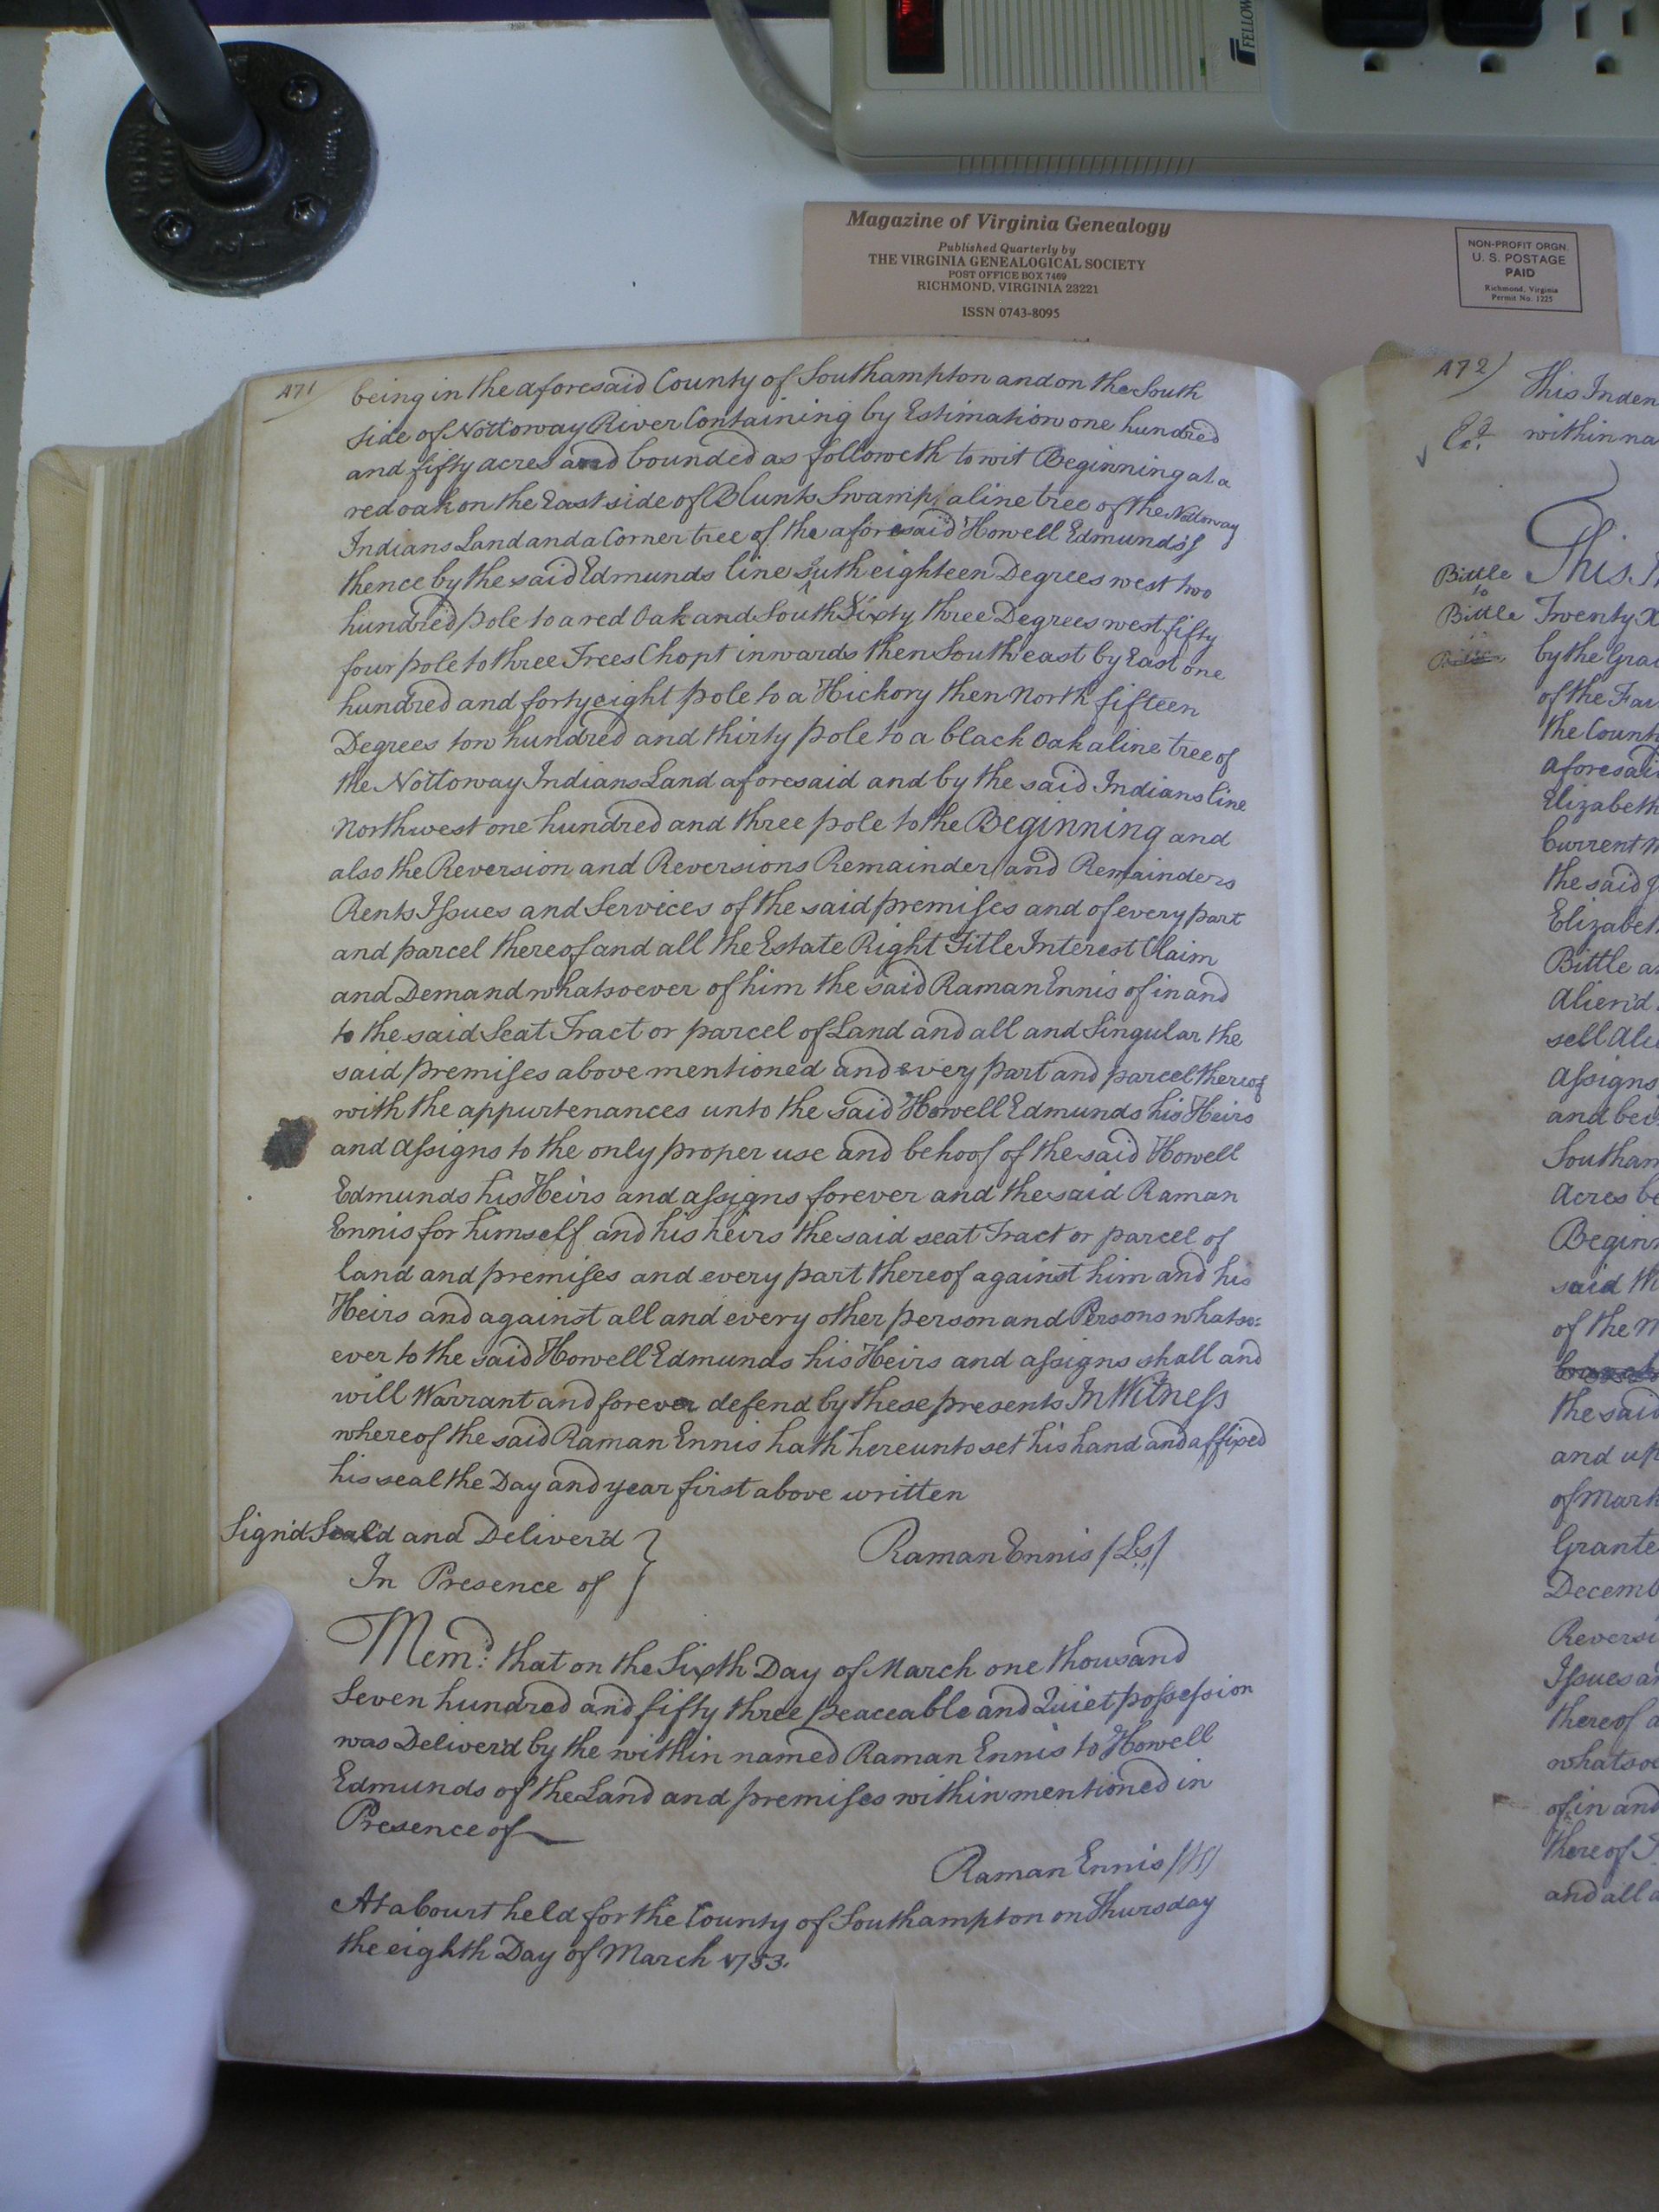 FELLOW
Magazine of Virginia Genealogy
Published Quarterly by
THE VIRGINIA GENEALOGICAL SOCIETY
POST OFFICE BOX 7469
RICHMOND, VIRGINIA 23221
ISSN 0743-8095
NON-PROFIT ORGN.
U. S. POSTAGE
PAID
Richmond, Virginia
Permit No. 1225
471
being in the aforesaid County of Southampton and on the South
side of Nottoway River Containing by Estimation one hundred
and fifty acres and bounded as followeth to wit Beginning at a
red oak on the East side of Blunts Swamp, a line tree of the Nottoway
Indians Land and a Corner tree of the aforesaid Howell Edmunds's
thence by the said Edmunds line South eighteen Degrees west two
hundred pole to a red Oak and South Sixty three Degrees west fifty
four pole to three Trees Chopt inwards then South east by East one
hundred and forty eight pole to a Hickory then North fifteen
Degrees tow hundred and thirty pole to a black Oak a line tree of
the Nottoway Indians Land aforesaid and by the said Indians line
Northwest one hundred and three pole to the Beginning and
also the Reversion and Reversions Remainder and Remainders
Rents Issues and Services of the said premises and of every part
and parcel thereof and all the Estate Right Title Interest Claim
and Demand whatsoever of him the said Raman Ennis of in and
to the said Seat Tract or parcel of Land and all and Singular the
said premises above mentioned and every part and parcel thereof
with the appurtenances unto the said Howell Edmunds his Heirs
and assigns to the only proper use and behoof of the said Howell
Edmunds his Heirs and assigns forever and the said Raman
Ennis for himself and his heirs the said seat Tract or parcel of
land and premises and every part thereof against him and his
Heirs and against all and every other person and Persons whatso:
ever to the said Howell Edmunds his Heirs and assigns shall and
will Warrant and forever defend by these presents In Witness
whereof the said Raman Ennis hath hereunto set his hand and affixed
his seal the Day and year first above written
Sign'd Seal'd and Deliver'd
In Presence of
Raman Ennis (Ls)
Memd: that on the Sixth Day of March one thousand
Seven hundred and fifty three peaceable and Quiet possession
was Deliver'd by the within named Raman Ennis to Howell
Edmunds of the Land and premises within mentioned in
Presence of
Raman Ennis (Ls)
At a Court held for the County of Southampton on Thursday
the eighth Day of March 1753.
472)
This Inden
Ex.
within na
Bittle
to
Bittle
This I
Twenty
by the Gra
of the Fa
the Count
aforesai
Elizabeth
Current
the said
Elizabet
Bittle a
Alien'd
sell Ali
Assigns
and bei
Southam
Acres be
Begin
said th
of the
the said
and up
of Mark
Grante
Decemb
Reversi
Issues a
thereof a
whatsoe
of in and
thereof
and all a